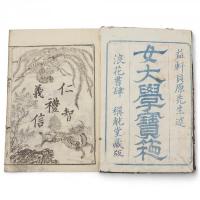 益軒貝原先生述
女大學寶箱
浪花書肆 稱觥堂藏版
仁禮智
義信